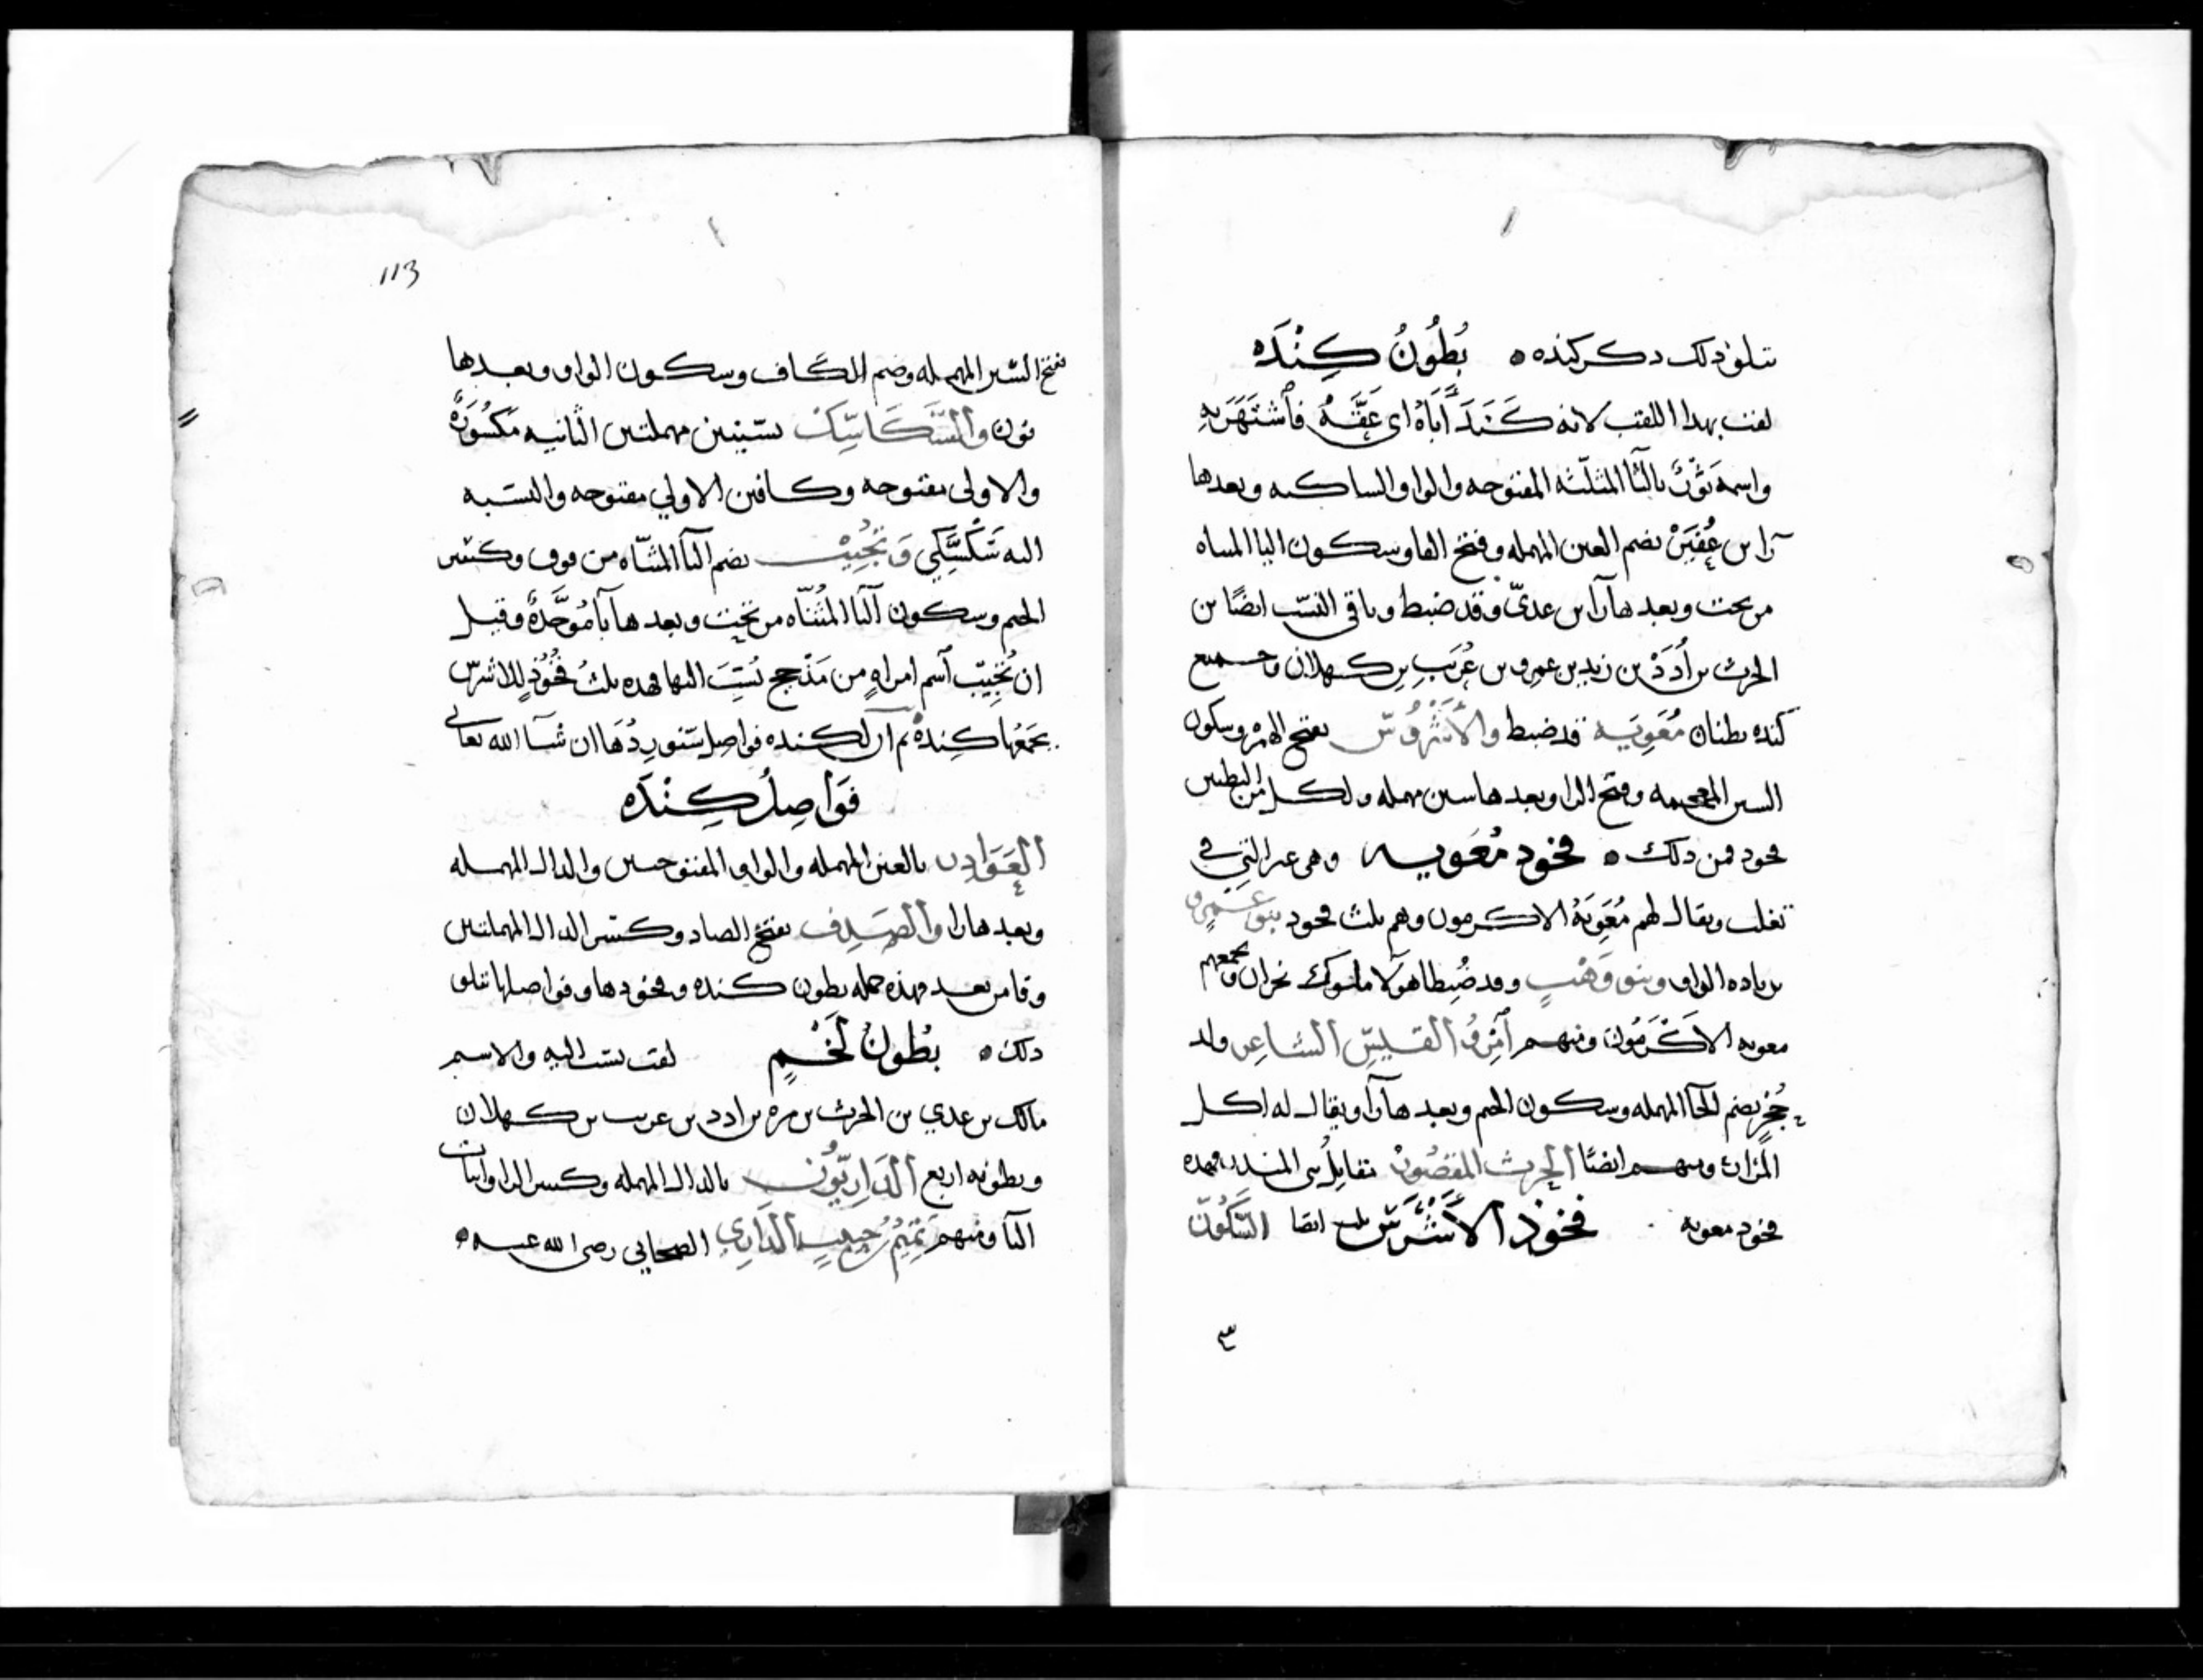 يتلو ذلك ذكر كنده ه بُطُونُ كِنْدَه
لقب بهذا اللقب لانه كَنَدَ أَبَاهُ اى عَقَّهُ فاَشْتَهَرَ بِهِ
واسمه ثَوْرٌ بالثا المثلثه المفتوحه والواو الساكنه وبعدها
رآ بن عُفَيْرْ بضم العين المهمله وفتح الفا وسكون اليا المثناه
من تحت وبعدها رآ بن عدىّ وقد ضبط وباقي النسب ايضًا بن
الحرث بن أُدَدْ بن زيد بن عمرو بن عُرَيبِ بن كهلان وجميع
كنده بطنان مُعَوِيَه قد ضبط والأَشْرَسْ بفتح الهمزه وسكون
الشين المعجمه وفتح الرا وبعدها سين مهمله ولكل من البطنين
فخود فمن ذلك ه فخود مُعَويه وهى غير التي في
تغلب ويقال لهم مُعَوِيَةُ الاكرمون وهم ثلث فخود بنو عَمرو
بزياده الواو وبنو وَهْبٍ وقد ضُبِطا هولا ملوك نجران ويجمعهم
معويه الاَكْرَمُونَ ومنهم اَمْرُؤُ القيسِ الشاعِر ولد
حُجْرٍ بضم الحآ المهمله وسكون الجيم وبعدها رآ ويقال له اكل
المُرَار ومنهم ايضًا الحرث المقصُورْ بن المنذر فهذه
فخود معويه فخوذُ الأَشْرَسْ ثلث ايضا السَّكُونْ
113
بفتح السّين المهمله وضم الكاف وسكون الواو وبعدها
نون والسَّكَاسِكْ بسّينين مهملتين الثانيه مَكسُورَةٌ
والاولى مفتوحه وكافين الاولي مفتوحه والنسبه
اليه سَكْسَكِي وَتُجِيْبْ بضم التآ المثنّاه من فوق وكسر
الجيم وسكون اليآ المُثنّاه من تحت وبعدها بآ مُوَحَّدةٌ وقيل
ان تُجِيبْ اسم امراهٍ من مَذْحج نُسِبَ اليها فهذه ثلثُ فُخُوْدٍ للاشرسْ
يجمَعُها كِندةُ ثم ان لكنده فواصل سَنورِدُهَا ان شآ الله تعالى
فَوَاصِلُ كِنْدَه
العَوَادِر بالعين المهمله والواو المفتوحتين والدال المهمله
وبعدها را والصَدِف بفتح الصاد وكسر الدال المهملتين
وفا من بعد فهذه جمله بطون كنده وفخودها وفواصلها تتلو
ذلك ه بُطُونُ لَخْمٍ لقب نسب اليه والاسم
مالك بن عدي بن الحرث بن مره بن ادد بن عريب بن كهلان
وبطونه اربع الدَارِيّوُن بالدال المهمله وكسر الرا واثبات
اليآ ومنهم تَمِيْمُ حبيب الدَارِي الصحابي رضى الله عنه ه